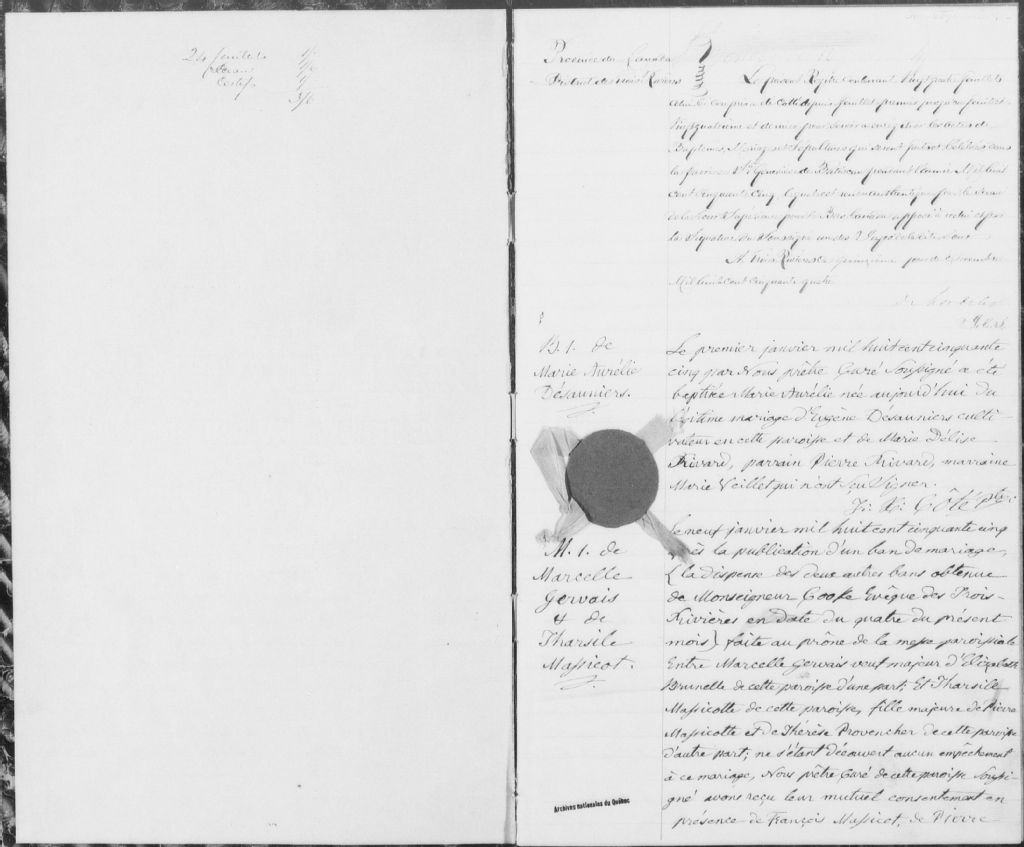 24 feuillets
3/6
Province du Canada
District des Trois Rivières
Le présent Registre contenant Vingt quatre feuillets
celui-ci compris et cotté depuis feuillet premier jusqu'au feuillet
Vingt quatrième et dernier pour servir à enregistrer les actes de
Baptêmes, Mariages et Sépultures qui seront faits et célébrés dans
la paroisse Ste Geneviève de Batiscan pendant l'année Mil huit
cent cinquante cinq, lequel est authentiqué par le Sceau
de la Cour Supérieure pour le Bas Canada apposé
la Signature du Soussigné un des
A Trois Rivières ce quinzième jour de
Mil huit cent cinquante quatre
B. 1. de
Marie Aurélie
Désauniers.
Le premier janvier mil huit cent cinquante
cinq par Nous prêtre Curé Soussigné a été
baptisée Marie Aurélie née aujourd'hui du
légitime mariage d'Eugène Désauniers culti-
vateur en cette paroisse et de Marie Délise
Rivard, parrain Pierre Rivard, marraine
Marie Veillet qui n'ont sçu signer.
Côté ptre
M. 1. de
Marcelle
Gervais
& de
Tharsile
Massicot.
Le neuf janvier mil huit cent cinquante cinq
après la publication d'un ban de mariage,
(la dispense des deux autres bans obtenue
de Monseigneur Cooke Evêque des Trois-
Rivières en date du quatre du présent
mois) faite au prône de la messe paroissiale
Entre Marcelle Gervais veuf majeur d'Elizabeth
Brunette de cette paroisse d'une part; Et Tharsile
Massicotte de cette paroisse, fille majeure de Pierre
Massicotte et de Thérèse Provencher de cette paroisse
d'autre part; ne s'étant découvert aucun empêchement
à ce mariage, Nous prêtre Curé de cette paroisse Soussi-
gné avons reçu leur mutuel consentement en
présence de François Massicot, de Pierre
Archives nationales du Québec